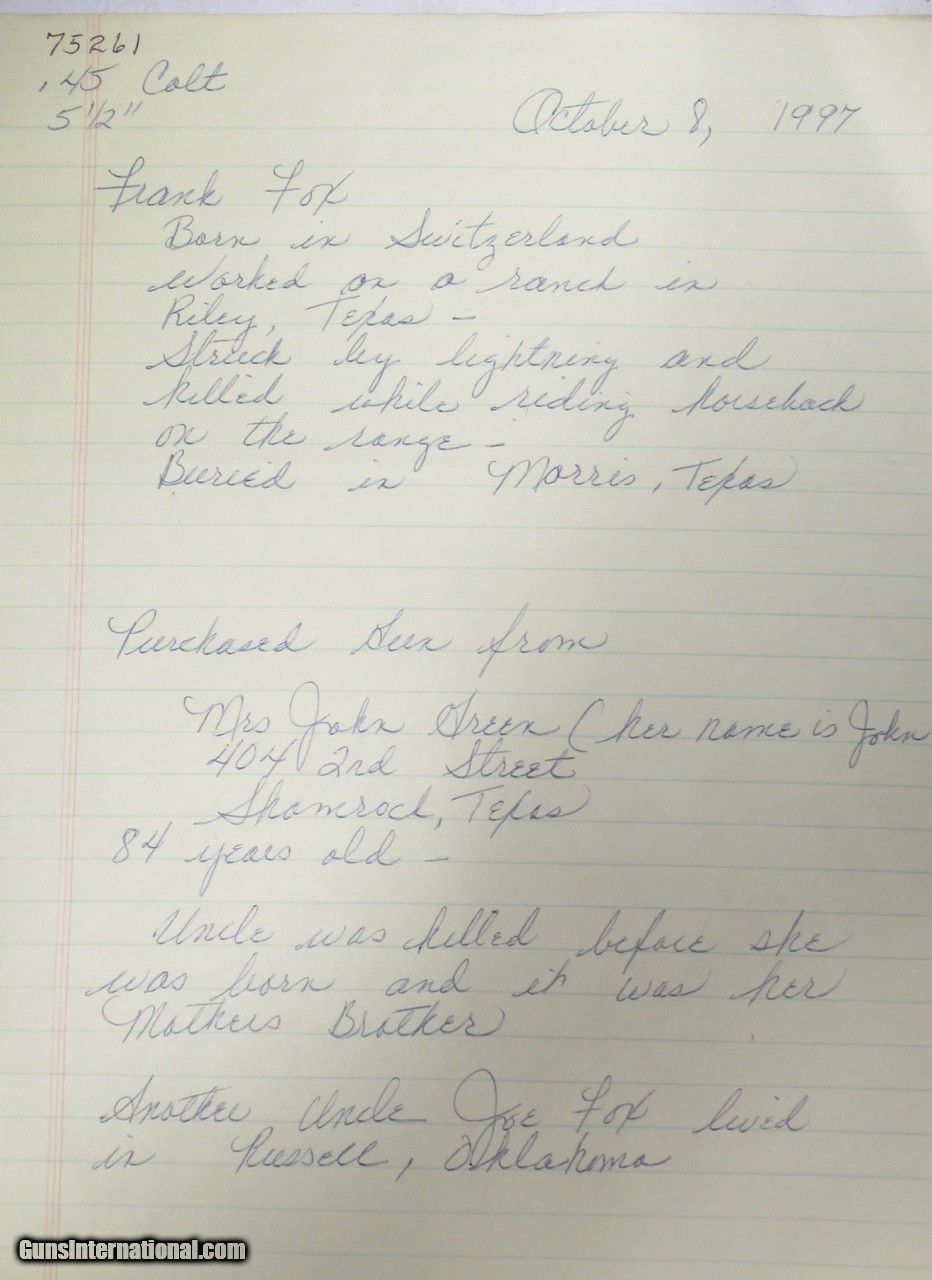 75261
.45 Colt
5 1/2"
October 8, 1997
Frank Fox
Born in Switzerland
worked on a ranch in
Riley, Texas –
Struck by lightning and
killed while riding horseback
on the range –
Buried in Morris, Texas
Purchased Gun from
Mrs John Green (her name is John
404 2nd Street
Shamrock, Texas
84 years old –
Uncle was killed before she
was born and it was her
Mothers Brother
Another Uncle Joe Fox lived
in Russell, Oklahoma
GunsInternational.com